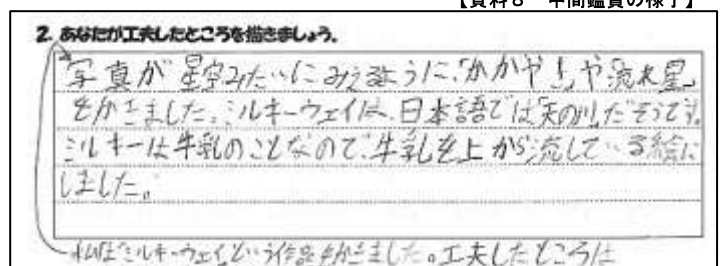 【資料8 中間鑑賞の様子】
2. あなたが工夫したところを描きましょう。
写真が星空みたいにみえるように、「かがやき」や「流れ星」
をかきました。ミルキーウェイは、日本語では「天の川」だそうです。
ミルキーは牛乳のことなので、牛乳を上から流している絵に
しました。
私は「ミルキーウェイ」という作品をかきました。工夫したところは